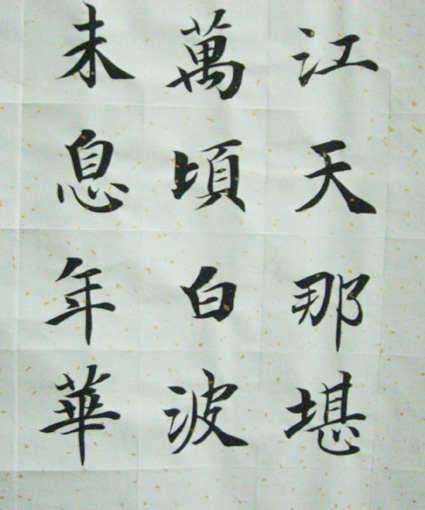 江天那堪
萬頃白波
未息年華